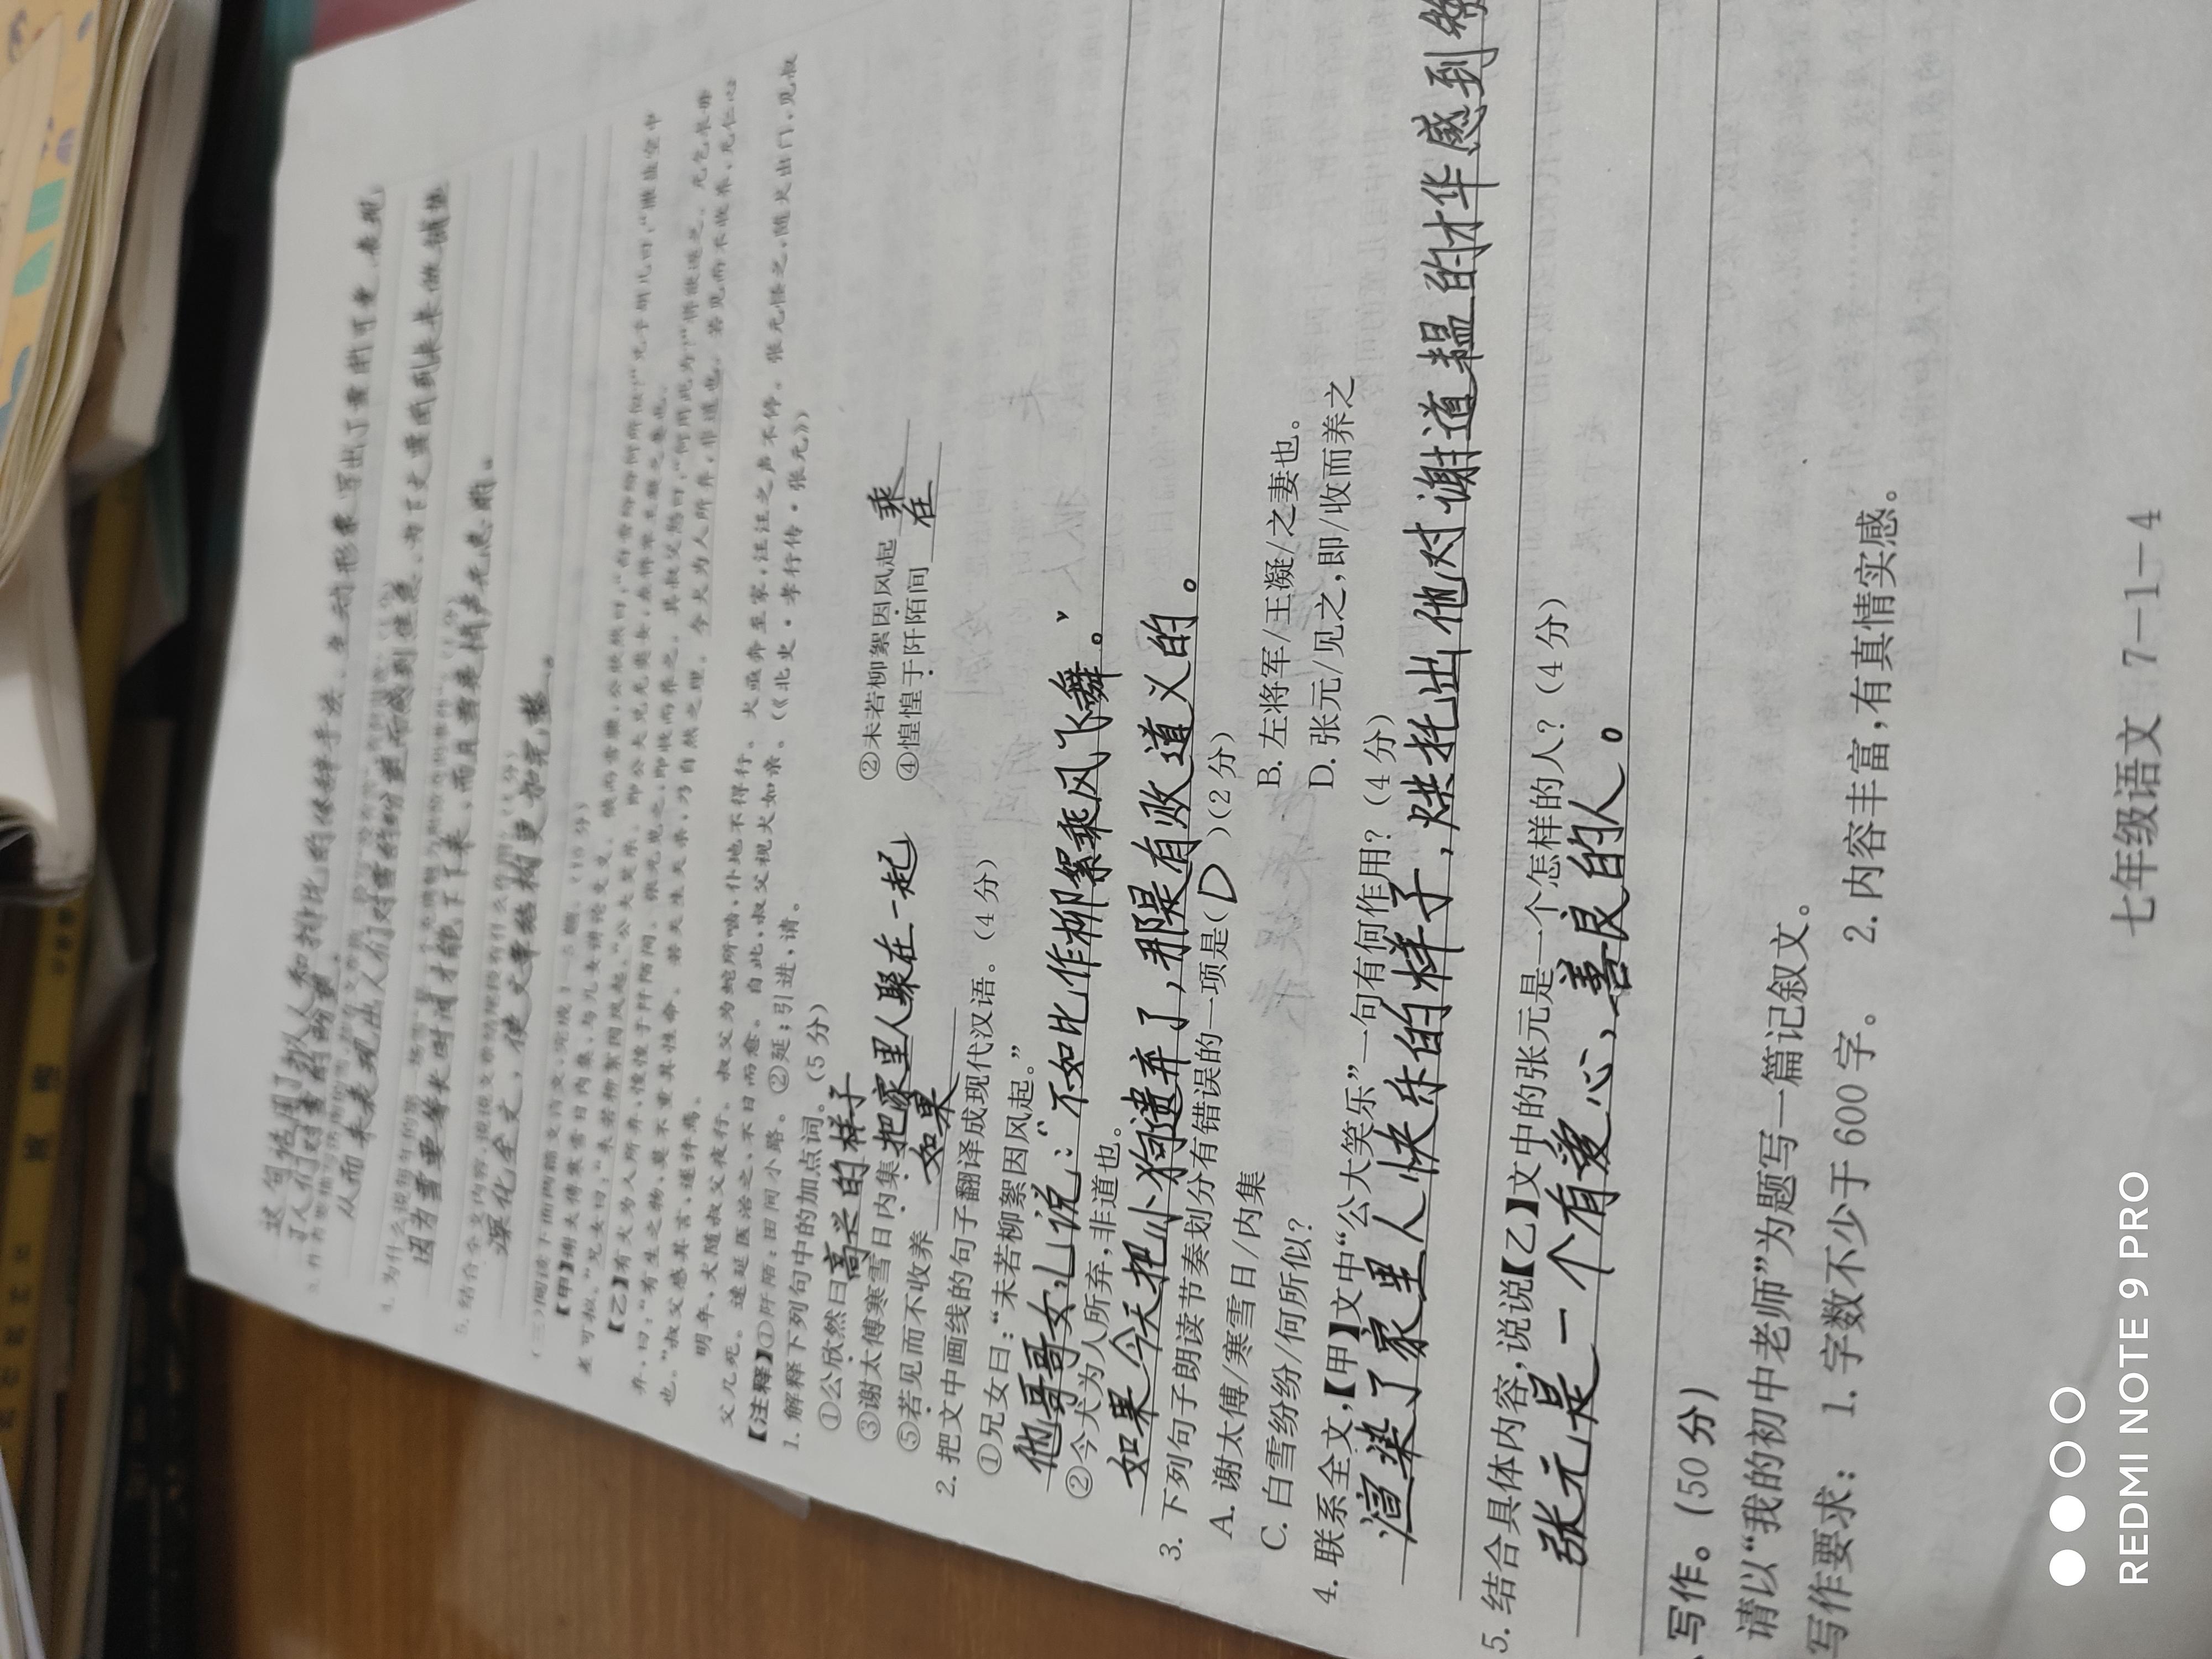 这句话用了拟人和排比的修辞手法,生动形象写出了雪的可爱,表现
了人们对雪的盼望。
从而来表现出人们对雪的盼望而感到住意,为下文
因为雪要等长时间才能下下来,而且雪是悄声无息的。
5.结合全文内容,说说文章结尾
深化全文,使文章结构更加完整。
(三)阅读下面两篇文言文,完成1—5题。(15分)
【甲】谢太傅寒雪日内集,与儿女讲论文义。俄而雪骤,公欣然曰:“白雪纷纷何所似?”兄子胡儿曰:“撒盐空中
差可拟。”兄女曰:“未若柳絮因风起。”公大笑乐。即公大兄无奕女,左将军王凝之妻也。
【乙】有犬为人所弃,惶惶于阡陌间。张元见之,即收而养之。其叔父怒曰:“何用此为?”将欲逐之。元乞求毋
弃,曰:“有生之物,莫不重其性命。若天生天杀,乃自然之理。今犬为人所弃,非道也。若见而不收养,无仁心
也。”叔父感其言,遂许焉。
明年,犬随叔父夜行。叔父为蛇所啮,仆地不得行。犬亟奔至家,汪汪之声不停。张元怪之,随犬出门,见叔
父几死。速延医治之,不日而愈。自此,叔父视犬如亲。(《北史·孝行传·张元》)
【注释】①阡陌:田间小路。②延:引进,请。
1.解释下列句中的加点词。(5分)
①公欣然曰 高兴的样子 ②未若柳絮因风起 乘
③谢太傅寒雪日内集 把家里人聚在一起 ④惶惶于阡陌间 在
⑤若见而不收养 如果
2.把文中画线的句子翻译成现代汉语。(4分)
①兄女曰:“未若柳絮因风起。”
他哥哥女儿说:“不如比作柳絮乘风飞舞。”
②今犬为人所弃,非道也。
如果今天把小狗遗弃了,那是有败道义的。
3.下列句子朗读节奏划分有错误的一项是( D )(2分)
A.谢太傅/寒雪日/内集 B.左将军/王凝/之妻也。
C.白雪纷纷/何所似? D.张元/见之,即/收而养之
4.联系全文,【甲】文中“公大笑乐”一句有何作用?(4分)
渲染了家里人快乐的样子,烘托出他对谢道韫的才华感到
5.结合具体内容,说说【乙】文中的张元是一个怎样的人?(4分)
张元是一个有爱心,善良的人。
写作。(50分)
请以“我的初中老师”为题写一篇记叙文。
写作要求: 1.字数不少于600字。 2.内容丰富,有真情实感。
七年级语文 7-1-4
REDMI NOTE 9 PRO